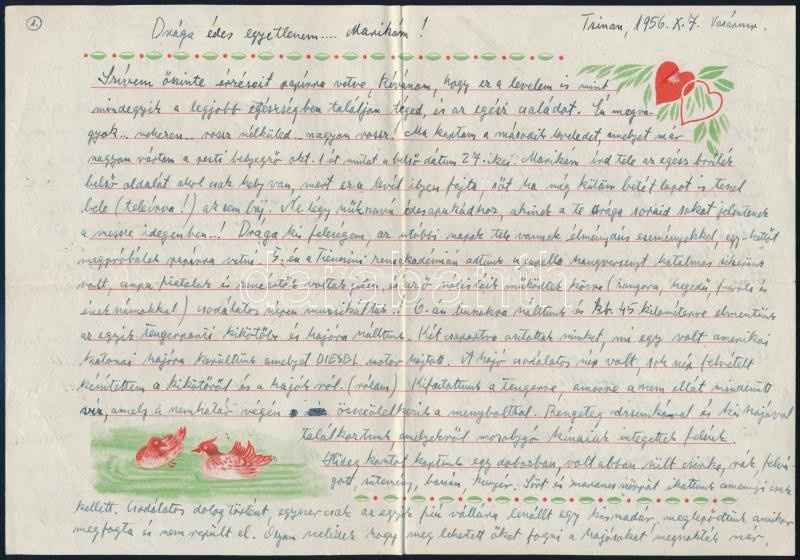 1.
Tsinan, 1956. X. 7. Vasárnap.
Drága édes egyetlenem.... Marikám!
Szívem őszinte érzéseit papírra vetve, kívánom, hogy ez a levelem is mint
mindegyik a legjobb egészségben találjon téged, és az egész családot. Én megva-
gyok... nehezen... rossz nélküled... nagyon rossz! Ma kaptam a második leveledet, amelyet már
nagyon vártam a pesti bélyegző okt. 1-ét mutat a belső dátum 27.-ikei. Marikám írd tele az egész boríték
belső oldalát ahol csak hely van, mert ez a levél ilyen fajta, sőt ha még külön betét lapot is teszel
bele (teleírva!) az sem baj. Ne légy szűkszavú édesapukádhoz, akinek a te drága soraid sokat jelentenek
a messze idegenben..! Drága kis feleségem, az utóbbi napok tele vannak élménydús eseményekkel, egy-kettőt
megpróbálok papírra vetni. 5.-én a Tiencini akadémián adtunk hangversenyt hatalmas sikerünk
volt, csupa fiatalok és voltak jelen, és az ő is működtek közre (zongora, hegedű, fuvola és
énekszámokkal) csodálatos szépen muzsikáltak..! 6.-án buszokra ültünk és kb. 45 kilométerre elmentünk
az egyik tengerparti kikötőbe és hajóra szálltunk. Két csoportra osztottak minket, mi egy volt amerikai
katonai hajóra kerültünk amelyet DIESEL motor hajtott. A hajó csodálatos szép volt, sok szép felvételt
készítettem a kikötőről és a hajókról. (rólam) Kifutottunk a tengerre, amerre a szem ellát mindenütt
víz, amely a szemhatár végén összeölelkezik a mennybolttal. Rengeteg dzsunkával és kis hajóval
találkoztunk amelyekről mosolygó kínaiak integettek felénk.
Hideg kosztot kaptunk egy dobozban, volt abban sült csirke, rák, felvá-
gott, sütemény, banán, kenyér. Sört és narancsszörpöt ihattunk amennyi csak
kellett. Csodálatos dolog történt egyszer csak az egyik fiú vállára leszállt egy kismadár, meglepődtünk amikor
megfogta és nem repült el. Olyan szelídek hogy meg lehetett őket fogni a hajósokat megszokták már.
darabanth